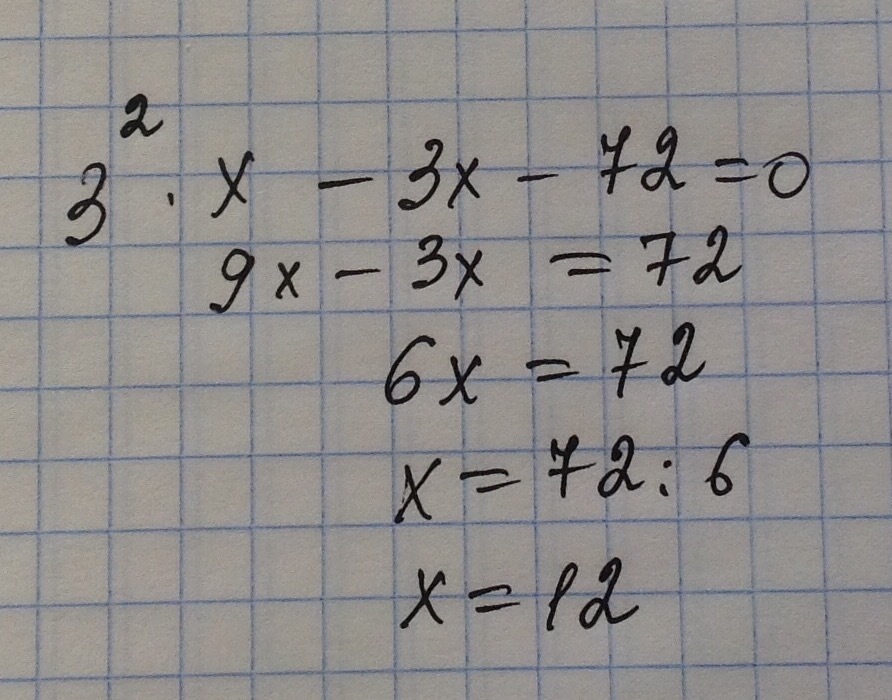 3² · x - 3x - 72 = 0
9x - 3x = 72
6x = 72
x = 72 : 6
x = 12